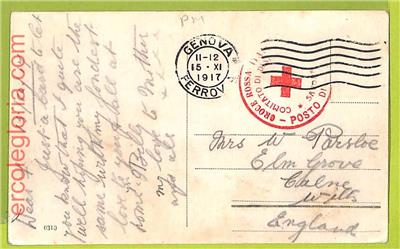 PM
GENOVA
11-12
15 · XI
1917
FERROV
CROCE ROSSA
COMITATO DI
POSTO DI
Dear
Just a card to let
you know that I quite
well hoping you are the
same with my fondest
love to you & all at
home Billy
my love to Mother
Mrs W
Elm Grove
Calne
Wilts
England
0310
ercolegloria.com